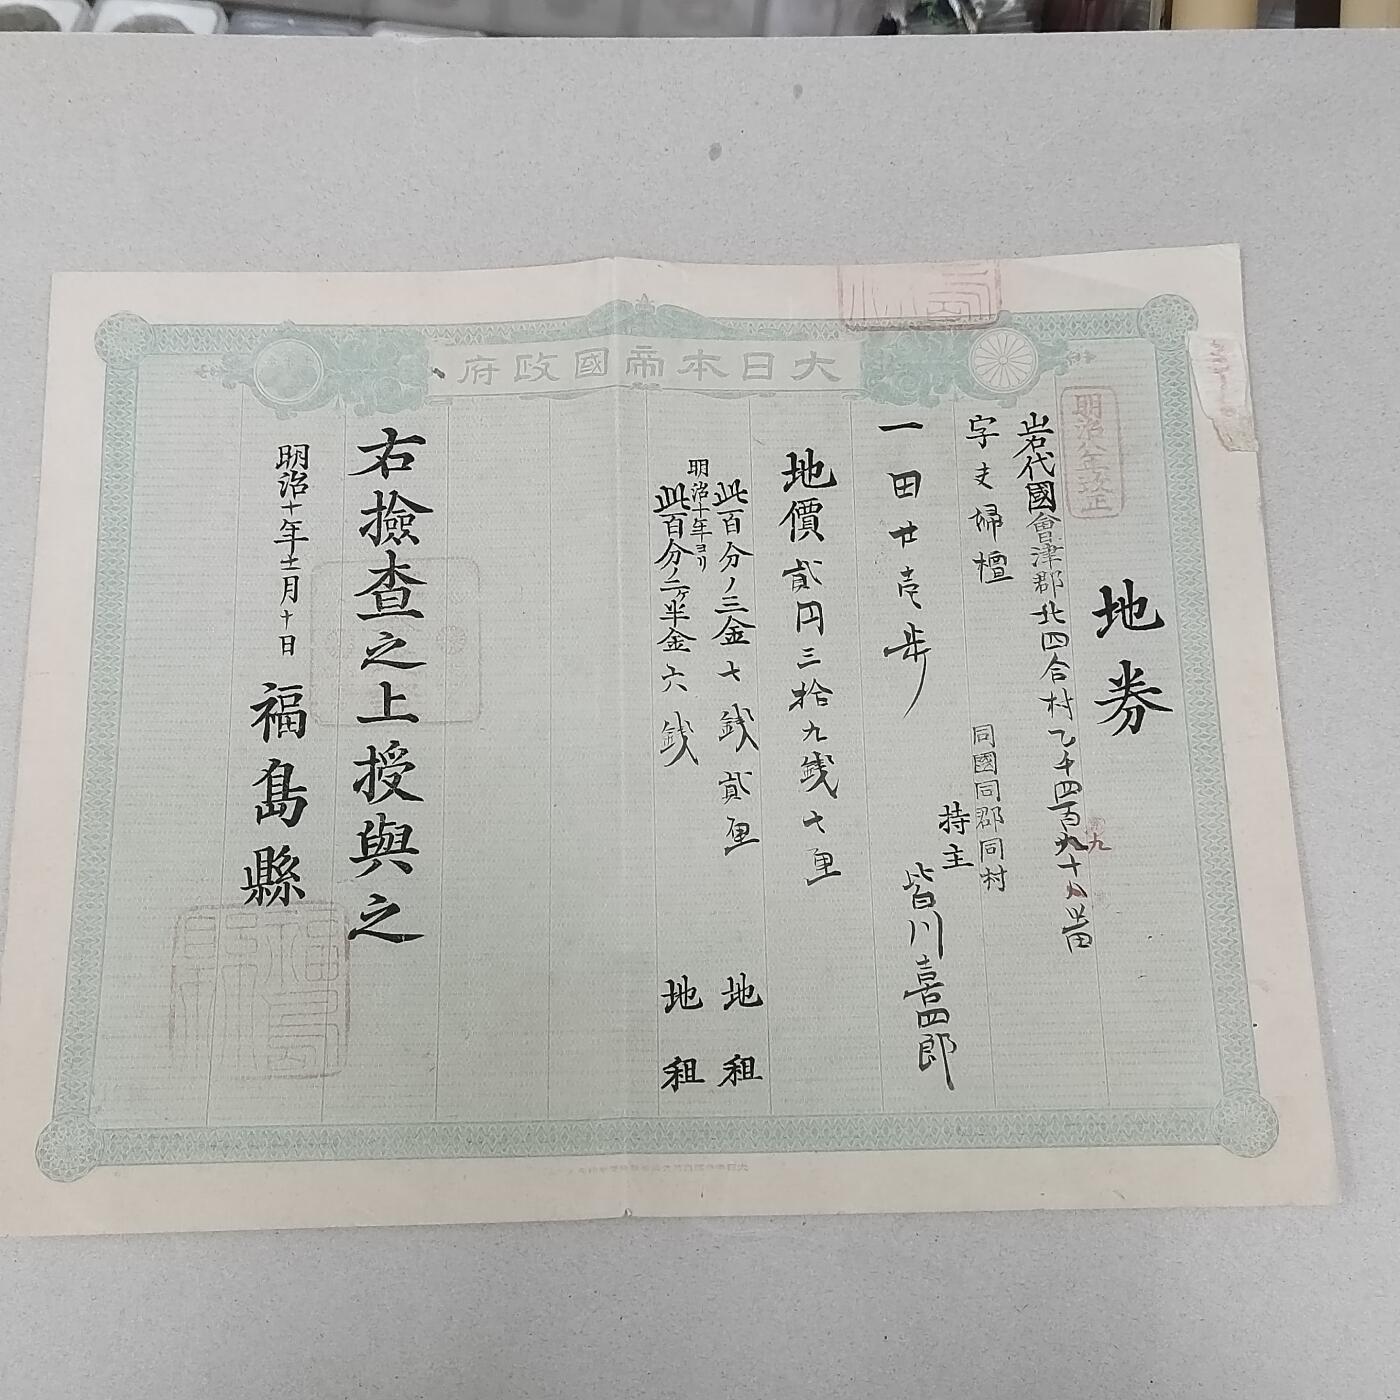 大日本帝國政府
地券
明治八年改正
岩代國會津郡北四合村乙千四百九十八番
九
字夫婦檀
同國同郡同村
持主 皆川喜四郎
一田廿壱歩
地價貳円三拾九銭七厘
此百分ノ三金七銭貳厘 地租
明治十年ヨリ
此百分ノ二ヶ半金六銭 地租
右撿査之上授與之
明治十年十二月十日 福島縣